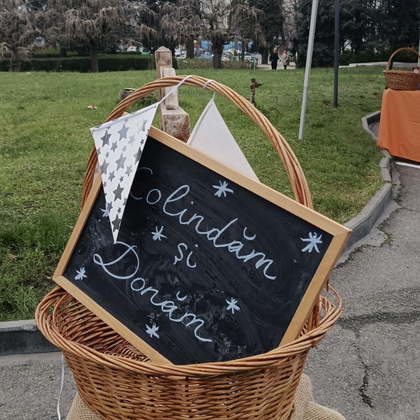 Colindăm
și
Donăm